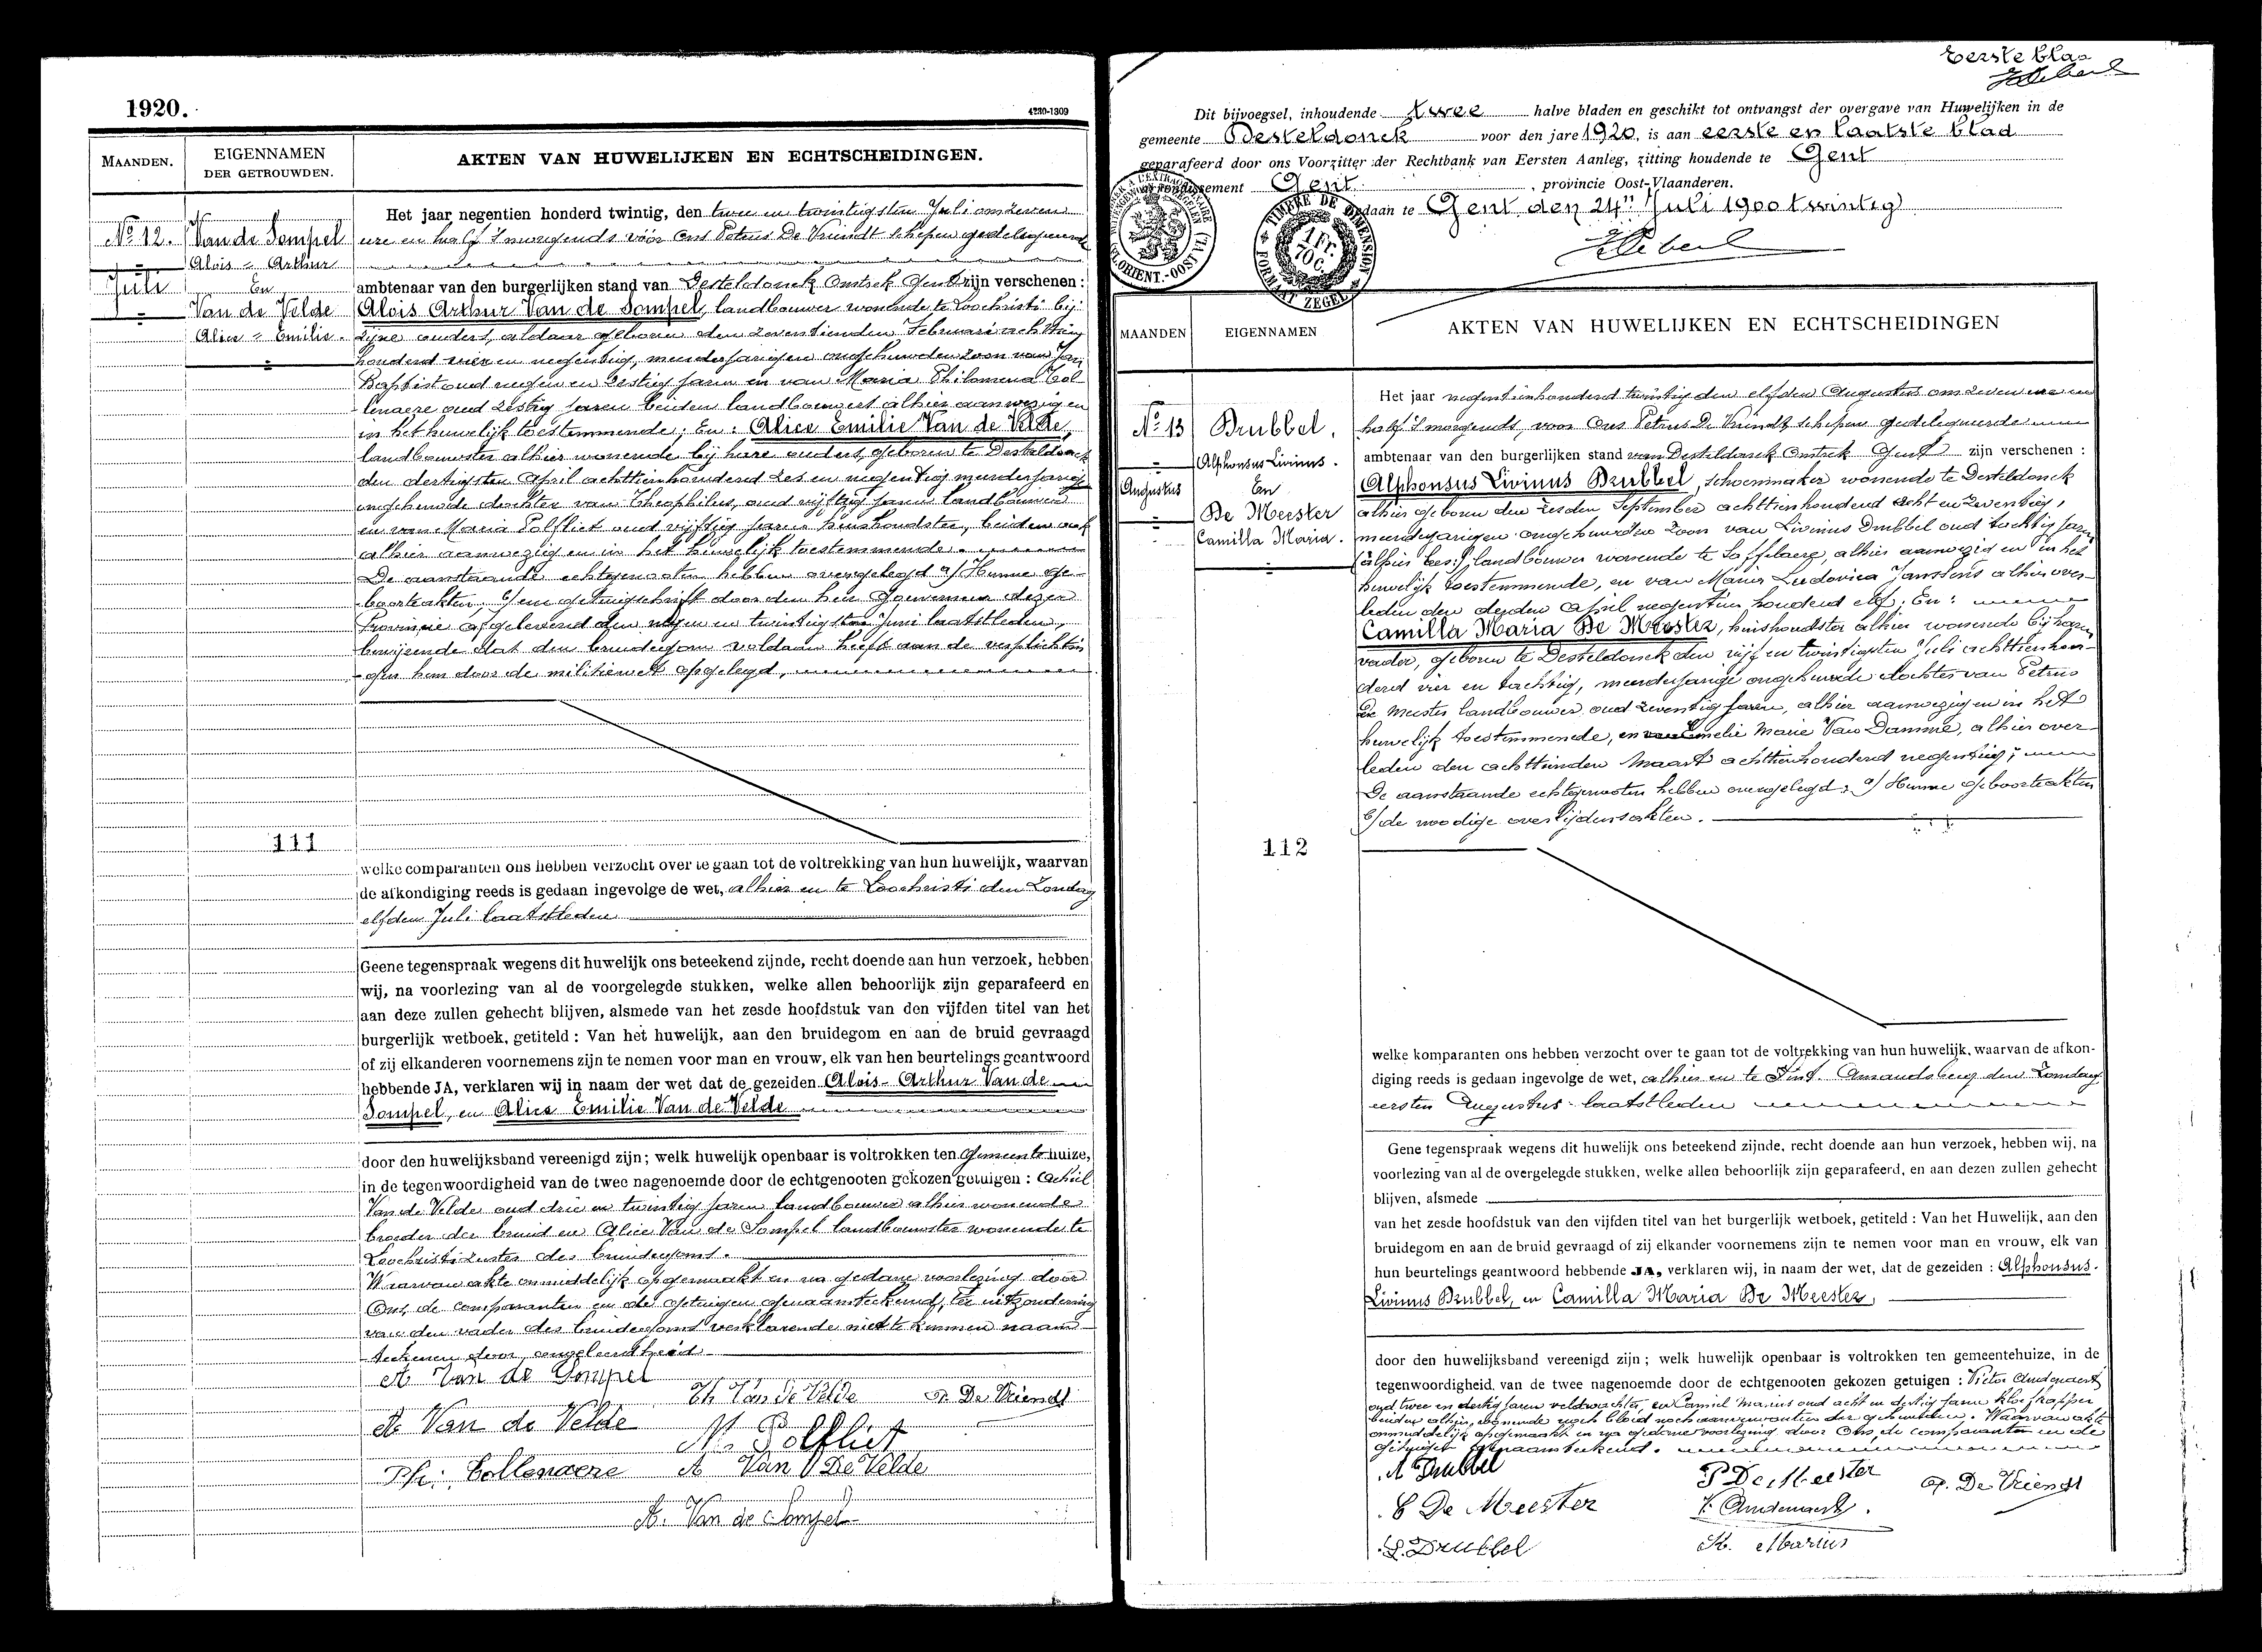 1920.
4230-1309
MAANDEN.
EIGENNAMEN
DER GETROUWDEN.
AKTEN VAN HUWELIJKEN EN ECHTSCHEIDINGEN.
No 12.
Juli
Van de Sompel
Alois - Arthur
En
Van de Velde
Alice - Emilie.
111
Het jaar negentien honderd twintig, den twee en twintigsten Juli om zeven
ure en half 's morgends vóór Ons Petrus De Vriendt schepen gedelegueerde
ambtenaar van den burgerlijken stand van Desteldonck Omtrek Gend zijn verschenen :
Alois Arthur Van de Sompel, landbouwer wonende te Loochristi bij
zijne ouders, aldaar geboren den zeventienden Februari achttien
honderd vier en negentig, meerderjarigen ongehuwden zoon van Jan
Baptist oud negen en zestig jaren en van Maria Philomena Col-
lenaere oud zestig jaren beiden landbouwers alhier aanwezig en
in het huwelijk toestemmende; En: Alice Emilie Van de Velde,
landbouwster alhier wonende bij hare ouders, geboren te Desteldonck
den dertigsten April achttienhonderd zes en negentig meerderjarige
ongehuwde dochter van Theophilus, oud vijftig jaren landbouwer
en van Maria Polfliet oud vijftig jaren huishoudster, beiden ook
alhier aanwezig en in het huwelijk toestemmende.
De aanstaande echtgenooten hebben overgelegd a/ Hunne ge-
boorteakten, b/ een getuigschrift door den heer Gouverneur dezer
Provincie afgeleverd den negen en twintigsten Juni laatstleden,
bewijzende dat den bruidegom voldaan heeft aan de verplichtin
-gen hem door de militiewet opgelegd,
welke comparanten ons hebben verzocht over te gaan tot de voltrekking van hun huwelijk, waarvan
de afkondiging reeds is gedaan ingevolge de wet, alhier en te Loochristi den Zondag
elfden Juli laatstleden
Geene tegenspraak wegens dit huwelijk ons beteekend zijnde, recht doende aan hun verzoek, hebben
wij, na voorlezing van al de voorgelegde stukken, welke allen behoorlijk zijn geparafeerd en
aan deze zullen gehecht blijven, alsmede van het zesde hoofdstuk van den vijfden titel van het
burgerlijk wetboek, getiteld : Van het huwelijk, aan den bruidegom en aan de bruid gevraagd
of zij elkanderen voornemens zijn te nemen voor man en vrouw, elk van hen beurtelings geantwoord
hebbende JA, verklaren wij in naam der wet dat de gezeiden Alois - Arthur Van de
Sompel, en Alice Emilie Van de Velde
door den huwelijksband vereenigd zijn; welk huwelijk openbaar is voltrokken ten Gemeentehuize,
in de tegenwoordigheid van de twee nagenoemde door de echtgenooten gekozen getuigen : Achiel
Van de Velde oud drie en twintig jaren landbouwer alhier wonende
broeder der bruid en Alice Van de Sompel landbouwster wonende te
Loochristi zuster des bruidegoms.
Waarvan akte onmiddelijk opgemaakt en na gedane voorlezing door
Ons, de comparanten en de getuigen genaamteekend, ter uitzondering
van den vader des bruidegoms verklarende niet te kunnen naam-
teekenen door ongeleerdheid.
A Van de Sompel
Th Van de Velde
P. De Vriendt
A Van de Velde
M. Polfliet
Ph: Collenaere
A Van De Velde
A. Van de Sompel
Eerste blad
Dit bijvoegsel, inhoudende twee halve bladen en geschikt tot ontvangst der overgave van Huwelijken in de
gemeente Desteldonck voor den jare 1920, is aan eerste en laatste blad
geparafeerd door ons Voorzitter der Rechtbank van Eersten Aanleg, zitting houdende te Gent
Gent , provincie Oost-Vlaanderen.
Gedaan te Gent, den 24n Juli 1900 twintig
TIMBRE DE DIMENSION
1 FR. 70 C.
FORMAAT ZEGEL
MAANDEN
EIGENNAMEN
AKTEN VAN HUWELIJKEN EN ECHTSCHEIDINGEN
No 13
Augustus
Drubbel,
Alphonsus Livinus.
En
De Meester
Camilla Maria.
112
Het jaar negentienhonderd twintig den elfden Augustus om zeven ure en
half 's morgends, voor Ons Petrus De Vriendt schepen gedelegueerde
ambtenaar van den burgerlijken stand van Desteldonck Omtrek Gend zijn verschenen :
Alphonsus Livinus Drubbel, schoenmaker wonende te Desteldonck
alhier geboren den zesden September achttienhonderd acht en zeventig,
meerderjarigen ongehuwden zoon van Livinus Drubbel oud tachtig jaren
landbouwer wonende te Saffelaere, alhier aanwezig en in het
huwelijk toestemmende, en van Maria Ludovica Janssens alhier over-
leden den derden April negentien honderd elf; En:
Camilla Maria De Meester, huishoudster alhier wonende bij haren
vader, geboren te Desteldonck den vijf en twintigsten Juli achttienhon-
derd vier en tachtig, meerderjarige ongehuwde dochter van Petrus
De Meester landbouwer oud zeventig jaren, alhier aanwezig en in het
huwelijk toestemmende, en van Emelie Marie Van Damme, alhier over-
leden den achttienden Maart achttienhonderd negentig;
De aanstaande echtgenooten hebben overgelegd: a/ Hunne geboorteakten
b/ de noodige overlijdensakten.
welke komparanten ons hebben verzocht over te gaan tot de voltrekking van hun huwelijk, waarvan de afkon-
diging reeds is gedaan ingevolge de wet, alhier en te Sint. Amandsberg den Zondag
eersten Augustus laatstleden
Gene tegenspraak wegens dit huwelijk ons beteekend zijnde, recht doende aan hun verzoek, hebben wij, na
voorlezing van al de overgelegde stukken, welke allen behoorlijk zijn geparafeerd, en aan dezen zullen gehecht
blijven, alsmede
van het zesde hoofdstuk van den vijfden titel van het burgerlijk wetboek, getiteld : Van het Huwelijk, aan den
bruidegom en aan de bruid gevraagd of zij elkander voornemens zijn te nemen voor man en vrouw, elk van
hun beurtelings geantwoord hebbende JA, verklaren wij, in naam der wet, dat de gezeiden : Alphonsus-
Livinus Drubbel, en Camilla Maria De Meester,
door den huwelijksband vereenigd zijn ; welk huwelijk openbaar is voltrokken ten gemeentehuize, in de
tegenwoordigheid van de twee nagenoemde door de echtgenooten gekozen getuigen : Victor Audenaert
oud twee en dertig jaren veldwachter, en Camiel Marius oud acht en dertig jaren kloefkapper
beiden alhier wonende noch bloed noch aanverwanten der gehuwden. Waarvan akte
onmiddelijk opgemaakt en na gedane voorlezing door Ons, de comparanten en de
getuigen genaamteekend.
A Drubbel
P De Meester
P. De Vriendt
C De Meester
V. Audenaert.
L. Drubbel
Marius